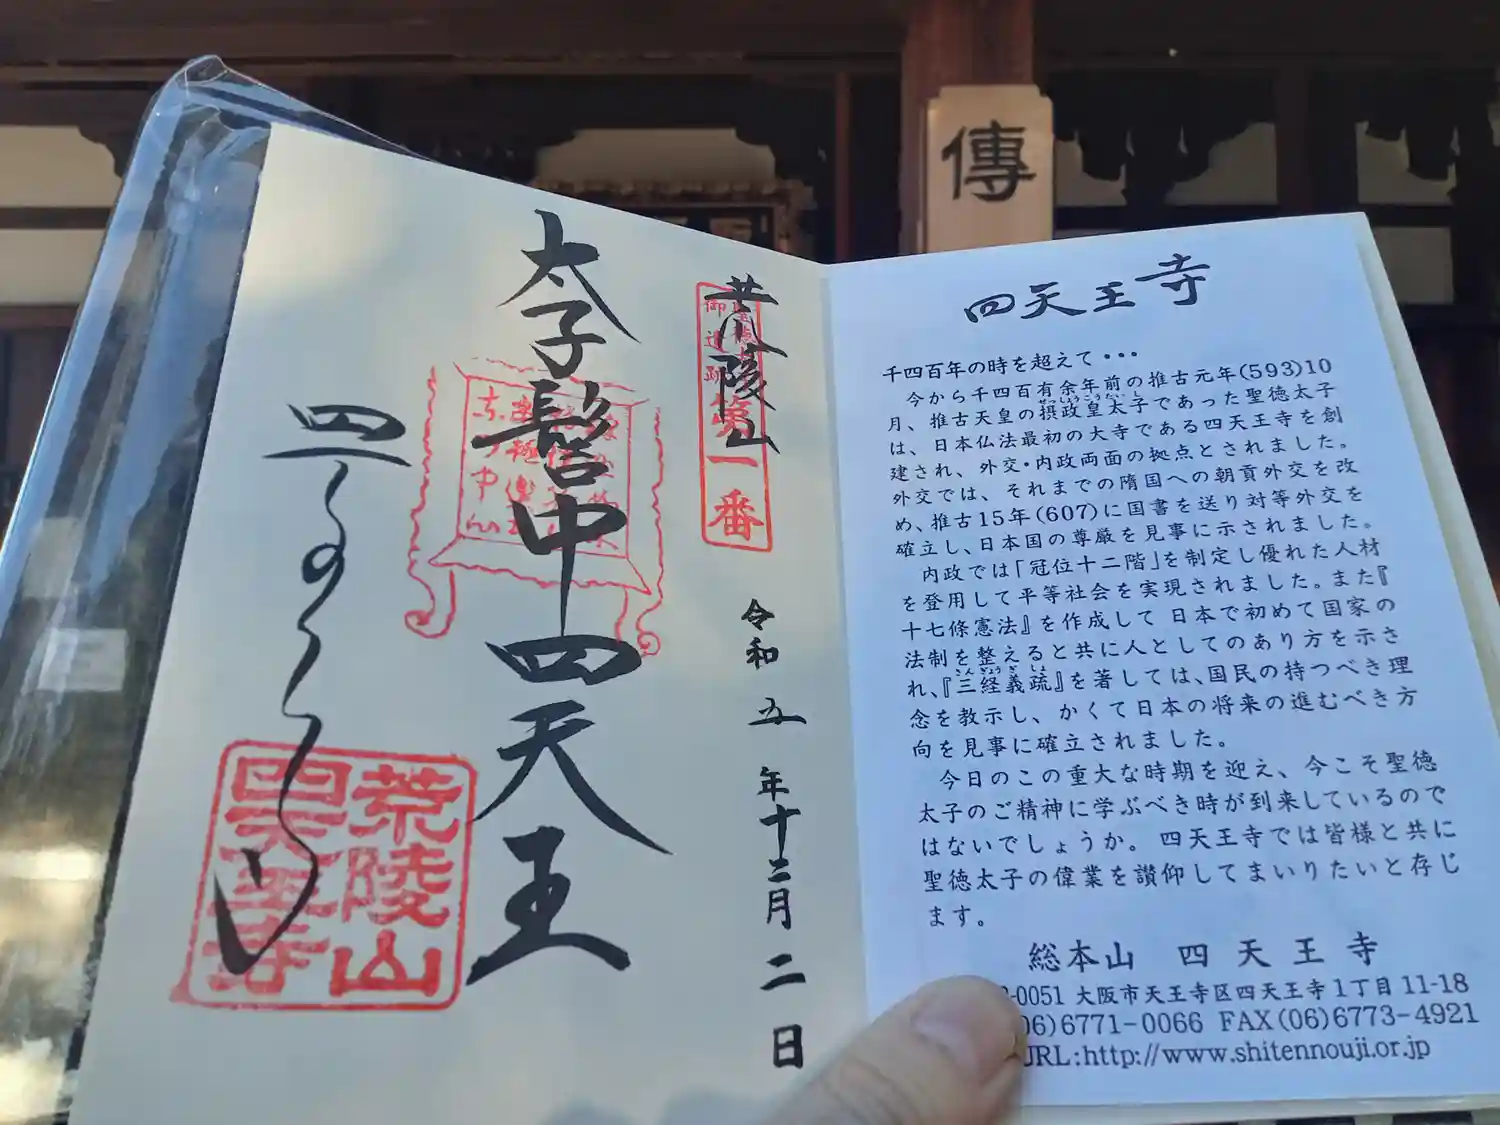 傳
荒陵山
御遺跡
第一番
令和五年十二月二日
太子髻中四天王
四天王寺
荒陵山
四天王寺
四天王寺
千四百年の時を超えて・・・
今から千四百有余年前の推古元年(593)10
月、推古天皇の摂政皇太子であった聖徳太子
は、日本仏法最初の大寺である四天王寺を創
建され、外交・内政両面の拠点とされました。
外交では、それまでの隋国への朝貢外交を改
め、推古15年(607)に国書を送り対等外交を
確立し、日本国の尊厳を見事に示されました。
内政では「冠位十二階」を制定し優れた人材
を登用して平等社会を実現されました。また『
十七條憲法』を作成して 日本で初めて国家の
法制を整えると共に人としてのあり方を示さ
れ、『三経義疏』を著しては、国民の持つべき理
念を教示し、かくて日本の将来の進むべき方
向を見事に確立されました。
今日のこの重大な時期を迎え、今こそ聖徳
太子のご精神に学ぶべき時が到来しているので
はないでしょうか。四天王寺では皆様と共に
聖徳太子の偉業を讃仰してまいりたいと存じ
ます。
総本山 四天王寺
-0051 大阪市天王寺区四天王寺1丁目11-18
06)6771-0066 FAX(06)6773-4921
URL:http://www.shitennouji.or.jp